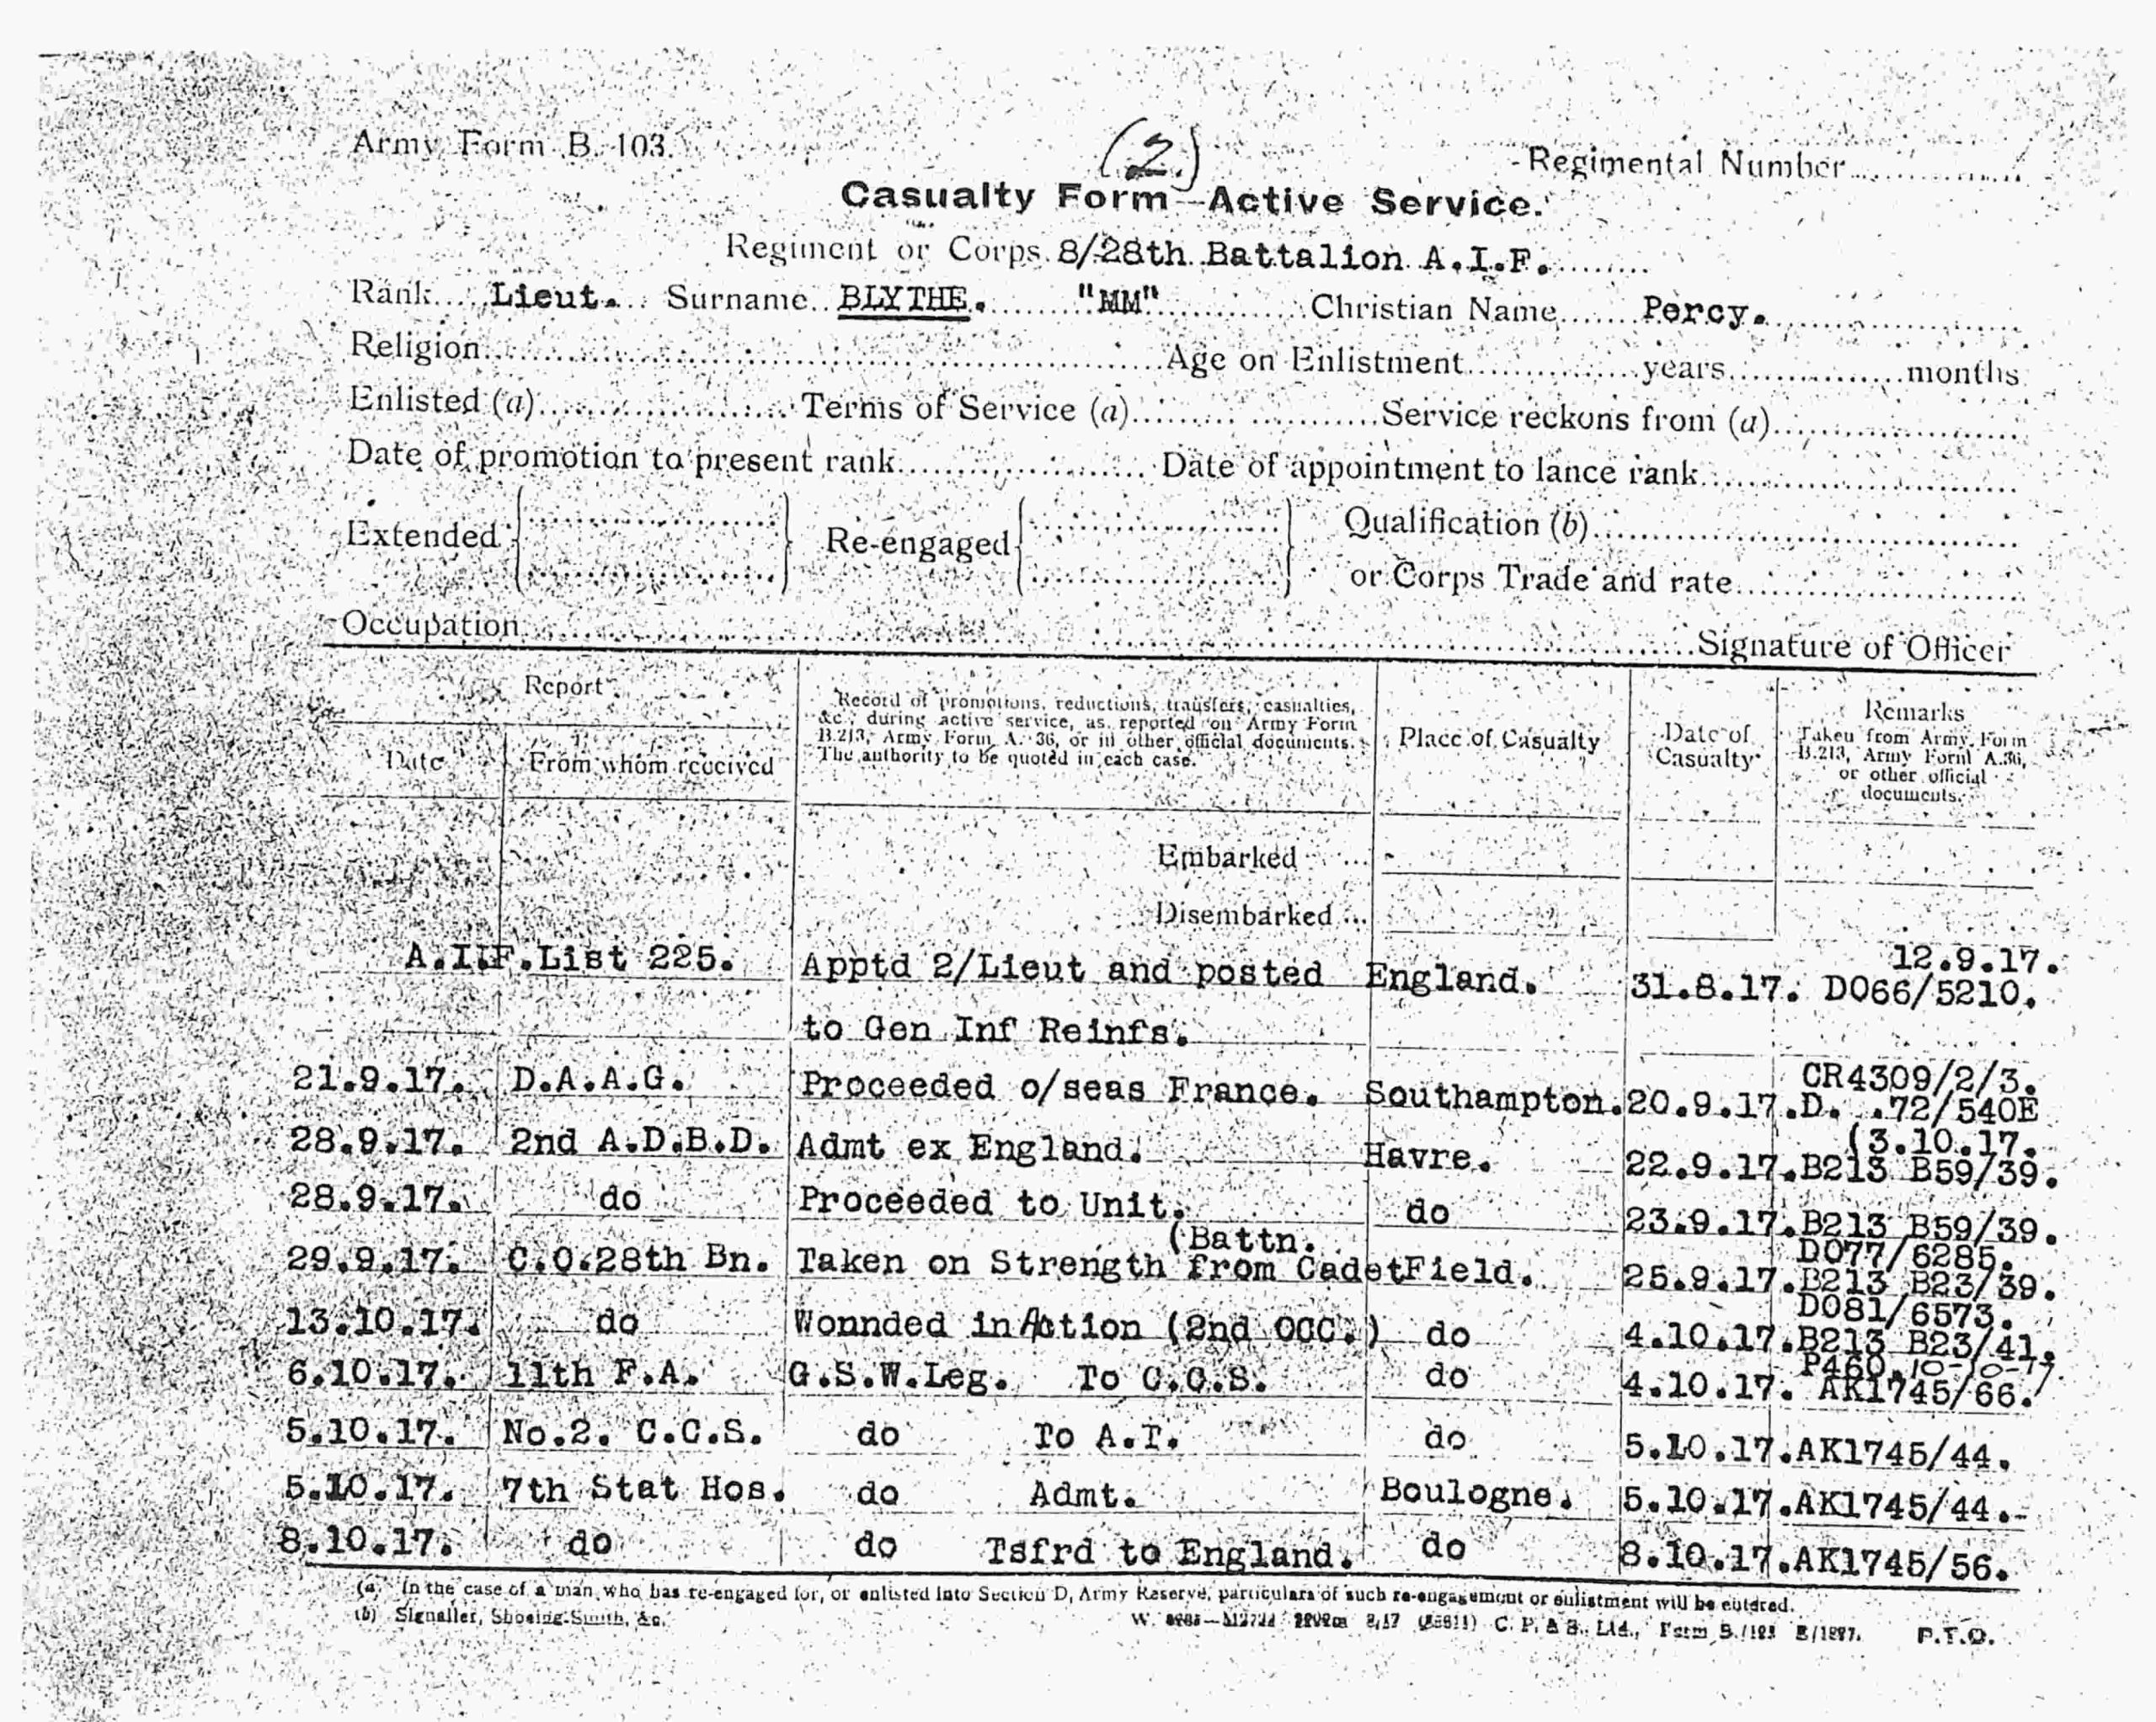 Army Form B. 103.
(2.)
Regimental Number
Casualty Form—Active Service.
Regiment or Corps 8/28th Battalion A.I.F.
Rank Lieut. Surname BLYTHE. "MM" Christian Name Percy.
Religion Age on Enlistment years months
Enlisted (a) Terms of Service (a) Service reckons from (a)
Date of promotion to present rank Date of appointment to lance rank
Extended Re-engaged Qualification (b)
or Corps Trade and rate
Occupation
Signature of Officer
Report
Date From whom received
Record of promotions, reductions, transfers, casualties,
&c., during active service, as reported on Army Form
B.213, Army Form A. 36, or in other official documents.
The authority to be quoted in each case.
Place of Casualty
Date of
Casualty
Remarks
Taken from Army Form
B.213, Army Form A.36,
or other official
documents.
Embarked ...
Disembarked ...
12.9.17.
A.I.F.List 225. Apptd 2/Lieut and posted England. 31.8.17. D066/5210.
to Gen Inf Reinfs.
CR4309/2/3.
21.9.17. D.A.A.G. Proceeded o/seas France. Southampton. 20.9.17. D. .72/540E
(3.10.17.
28.9.17. 2nd A.D.B.D. Admt ex England. Havre. 22.9.17. B213 B59/39.
28.9.17. do Proceeded to Unit. do 23.9.17. B213 B59/39.
(Battn. D077/6285.
29.9.17. C.O.28th Bn. Taken on Strength from Cadet Field. 25.9.17. B213 B23/39.
D081/6573.
13.10.17. do Wonnded in Action (2nd occ.) do 4.10.17. B213 B23/41.
P460. 10-10-17.
6.10.17. 11th F.A. G.S.W.Leg. To C.C.S. do 4.10.17. AK1745/66.
5.10.17. No.2. C.C.S. do To A.T. do 5.10.17. AK1745/44.
5.10.17. 7th Stat Hos. do Admt. Boulogne. 5.10.17. AK1745/44.-
8.10.17. do do Tsfrd to England. do 8.10.17. AK1745/56.
(a) In the case of a man who has re-engaged for, or enlisted into Section D, Army Reserve, particulars of such re-engagement or enlistment will be entered.
(b) Signaller, Shoeing-Smith, &c.
W. C. P. & S., Ltd., Form B./103 P.T.O.